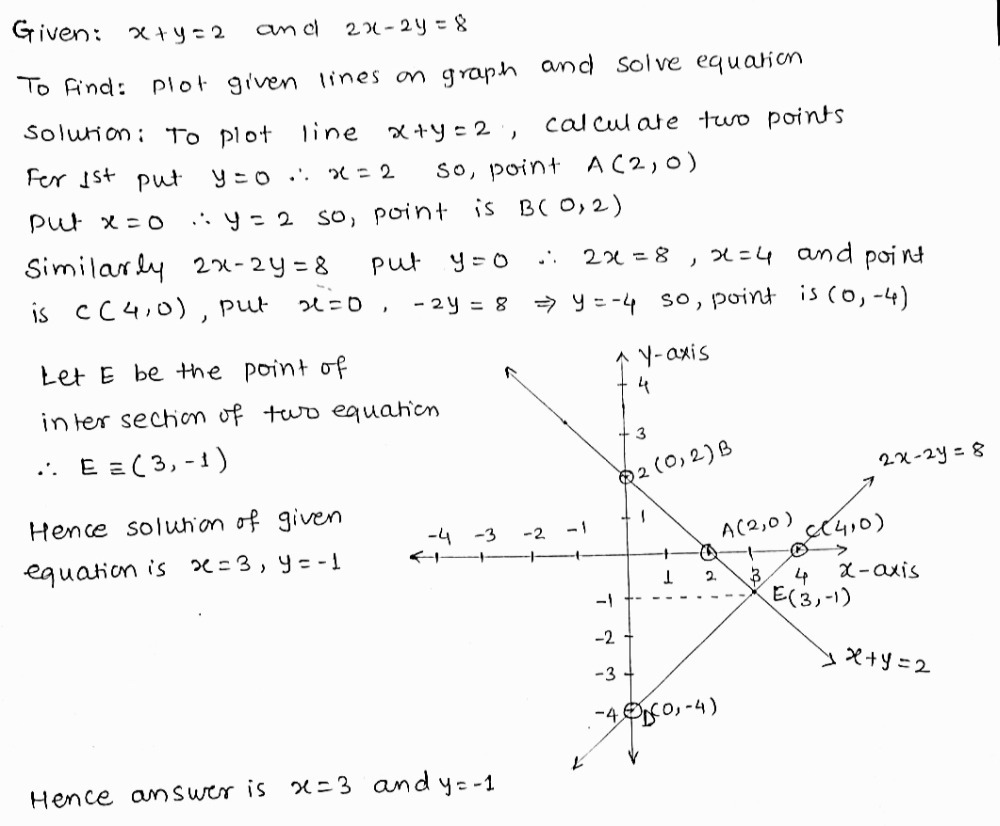 Given: x+y=2 and 2x-2y=8
To Find: plot given lines on graph and solve equation
Solution: To plot line x+y=2, calculate two points
For 1st put y=0 ∴ x=2 so, point A(2,0)
put x=0 ∴ y=2 so, point is B(0,2)
Similarly 2x-2y=8 put y=0 ∴ 2x=8, x=4 and point
is C(4,0), put x=0, -2y=8 ⇒ y=-4 so, point is (0,-4)
Let E be the point of
intersection of two equation
∴ E≡(3,-1)
Hence solution of given
equation is x=3, y=-1
Y-axis
4
3
2 (0,2)B
2x-2y=8
1
A(2,0) C(4,0)
-4 -3 -2 -1
1 2 3 4 x-axis
-1
E(3,-1)
-2
x+y=2
-3
-4 D(0,-4)
Hence answer is x=3 and y=-1